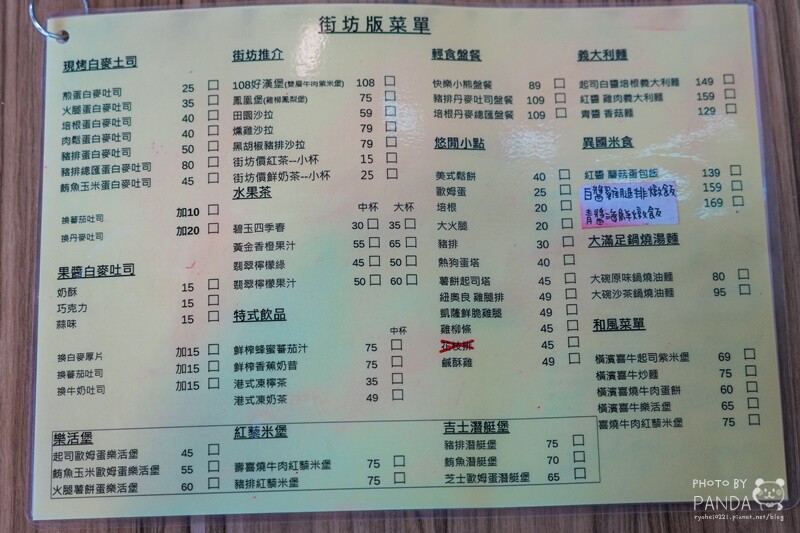 街坊版菜單
現烤白麥土司
煎蛋白麥吐司 25
火腿蛋白麥吐司 35
培根蛋白麥吐司 40
肉鬆蛋白麥吐司 40
豬排蛋白麥吐司 50
豬排總匯蛋白麥吐司 80
鮪魚玉米蛋白麥吐司 45
換蕃茄吐司 加10
換丹麥吐司 加20
果醬白麥吐司
奶酥 15
巧克力 15
蒜味 15
換白麥厚片 加15
換蕃茄吐司 加15
換牛奶吐司 加15
街坊推介
108好漢堡(雙層牛肉紫米堡) 108
鳳凰堡(雞柳鳳梨堡) 75
田園沙拉 59
燻雞沙拉 79
黑胡椒豬排沙拉 79
街坊價紅茶--小杯 15
街坊價鮮奶茶--小杯 25
水果茶
中杯 大杯
碧玉四季春 30 35
黃金香橙果汁 55 65
翡翠檸檬綠 45 50
翡翠檸檬果汁 50 60
特式飲品
中杯
鮮榨蜂蜜蕃茄汁 75
鮮榨香蕉奶昔 75
港式凍檸茶 35
港式凍奶茶 49
輕食盤餐
快樂小熊盤餐 89
豬排丹麥吐司盤餐 109
培根丹麥吐司盤餐 109
悠閒小點
美式鬆餅 40
歐姆蛋 25
培根 20
大火腿 20
豬排 30
熱狗蛋塔 40
薯餅起司塔 45
紐奧良 雞腿排 49
凱薩鮮脆雞腿 49
雞柳條 45
花枝排 45
鹹酥雞 49
義大利麵
起司白醬培根義大利麵 149
紅醬 雞肉義大利麵 159
青醬 香菇麵 129
異國米食
紅醬 蘑菇蛋包飯 139
白醬雞腿排燉飯 159
青醬海鮮燉飯 169
大滿足鍋燒湯麵
大碗原味鍋燒油麵 80
大碗沙茶鍋燒油麵 95
和風菜單
橫濱喜牛起司紫米堡 69
橫濱喜牛炒麵 75
橫濱喜燒牛肉蛋餅 60
橫濱喜牛樂活堡 65
喜燒牛肉紅藜米堡 75
樂活堡
起司歐姆蛋樂活堡 45
鮪魚玉米歐姆蛋樂活堡 55
火腿薯餅蛋樂活堡 60
紅藜米堡
壽喜燒牛肉紅藜米堡 75
豬排紅藜米堡 75
吉士潛艇堡
豬排潛艇堡 75
鮪魚潛艇堡 70
芝士歐姆蛋潛艇堡 65
PHOTO BY
PANDA
ryohei0221.pixnet.net/blog